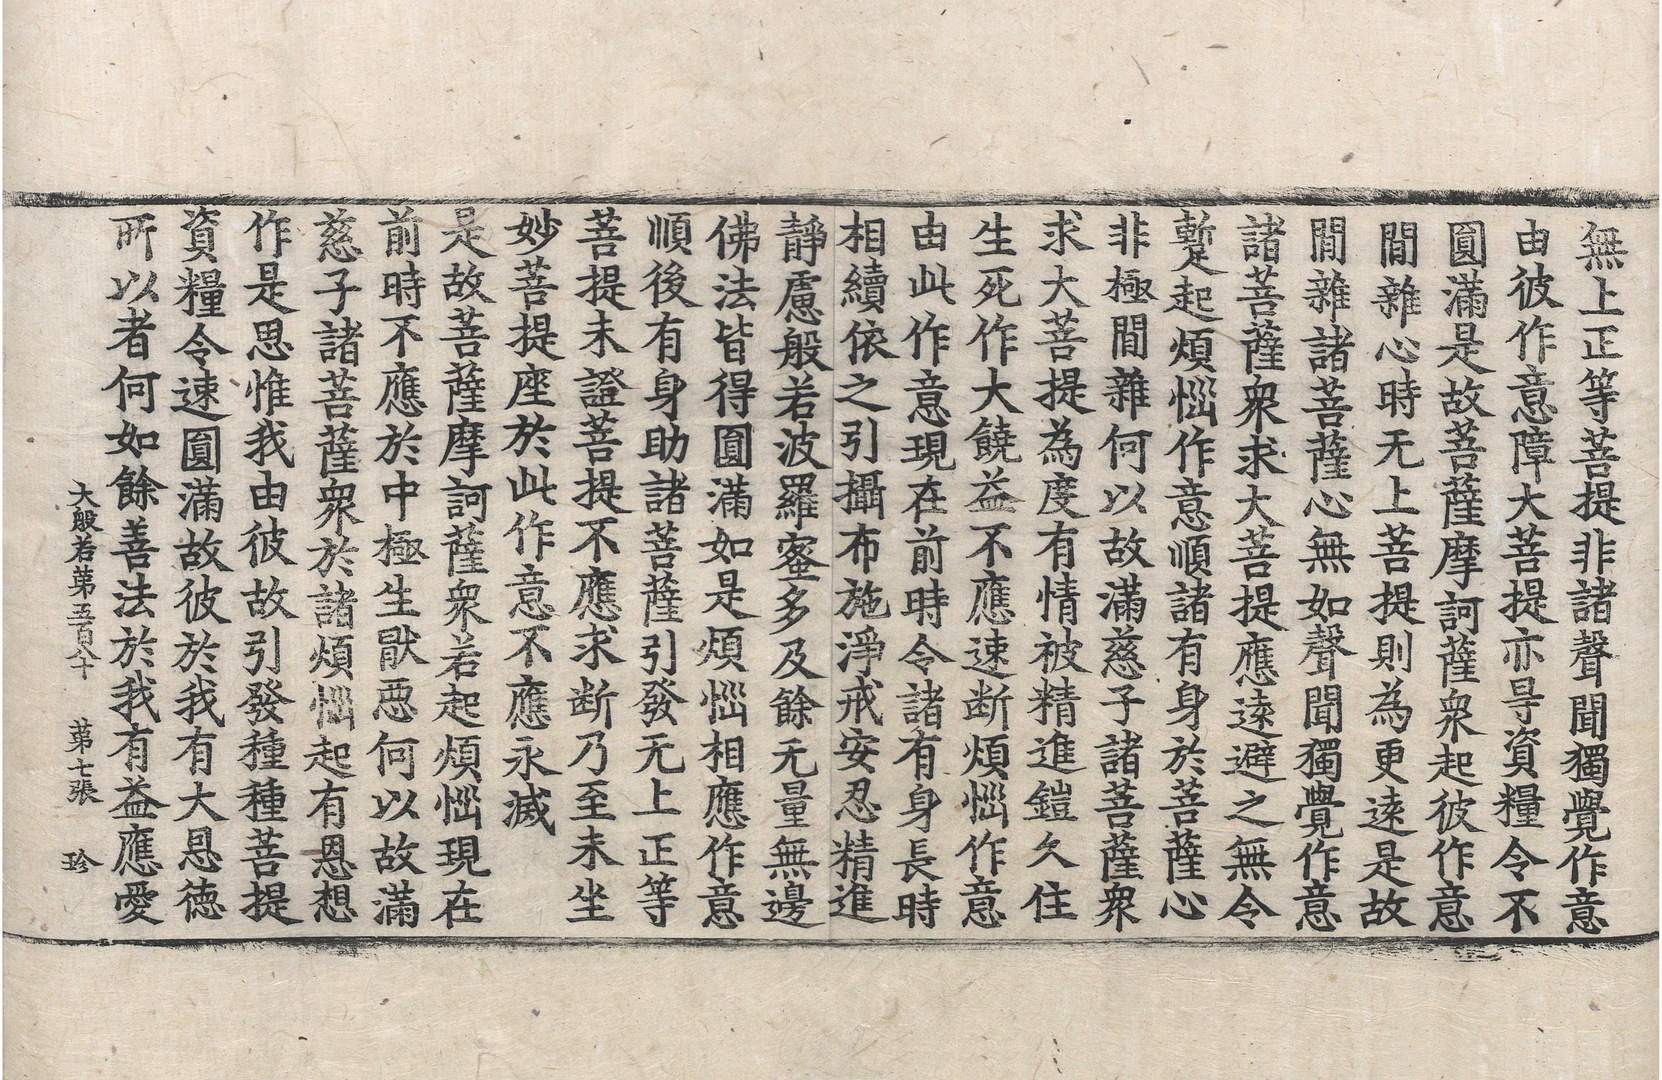 無上正等菩提非諸聲聞獨覺作意
由彼作意障大菩提亦㝵資糧令不
圓滿是故菩薩摩訶薩衆起彼作意
間雜心時无上菩提則為更逺是故
間雜諸菩薩心無如聲聞獨覺作意
諸菩薩衆求大菩提應逺避之無令
蹔起煩惱作意順諸有身於菩薩心
非極間雜何以故滿慈子諸菩薩衆
求大菩提為度有情被精進鎧久住
生死作大饒益不應速断煩惱作意
由此作意現在前時令諸有身長時
相續依之引攝布施淨戒安忍精進
靜慮般若波羅蜜多及餘无量無邊
佛法皆得圓滿如是煩惱相應作意
順後有身助諸菩薩引發无上正等
菩提未證菩提不應求断乃至未坐
妙菩提座於此作意不應永滅
是故菩薩摩訶薩衆若起煩惱現在
前時不應於中極生猒惡何以故滿
慈子諸菩薩衆於諸煩惱起有恩想
作是思惟我由彼故引發種種菩提
資糧令速圓滿故彼於我有大恩德
所以者何如餘善法於我有益應愛
大般若第五百八十 第七張 珍